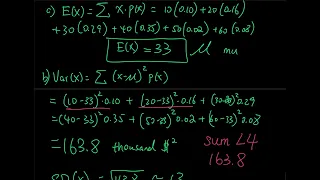 c) E(x) = ∑ x·p(x) = 10(0.10)+20(0.16)
+30(0.29)+40(0.35)+50(0.02)+60(0.08)
E(x) = 33 μ mu
b) Var(x) = ∑ (x-μ)² p(x)
= (10-33)²·0.10 + (20-33)²·0.16 + (30-33)²0.29
= (40-33)²0.35 + (50-33)²0.02 + (60-33)²0.08
= 163.8 thousand $² sum L4
163.8